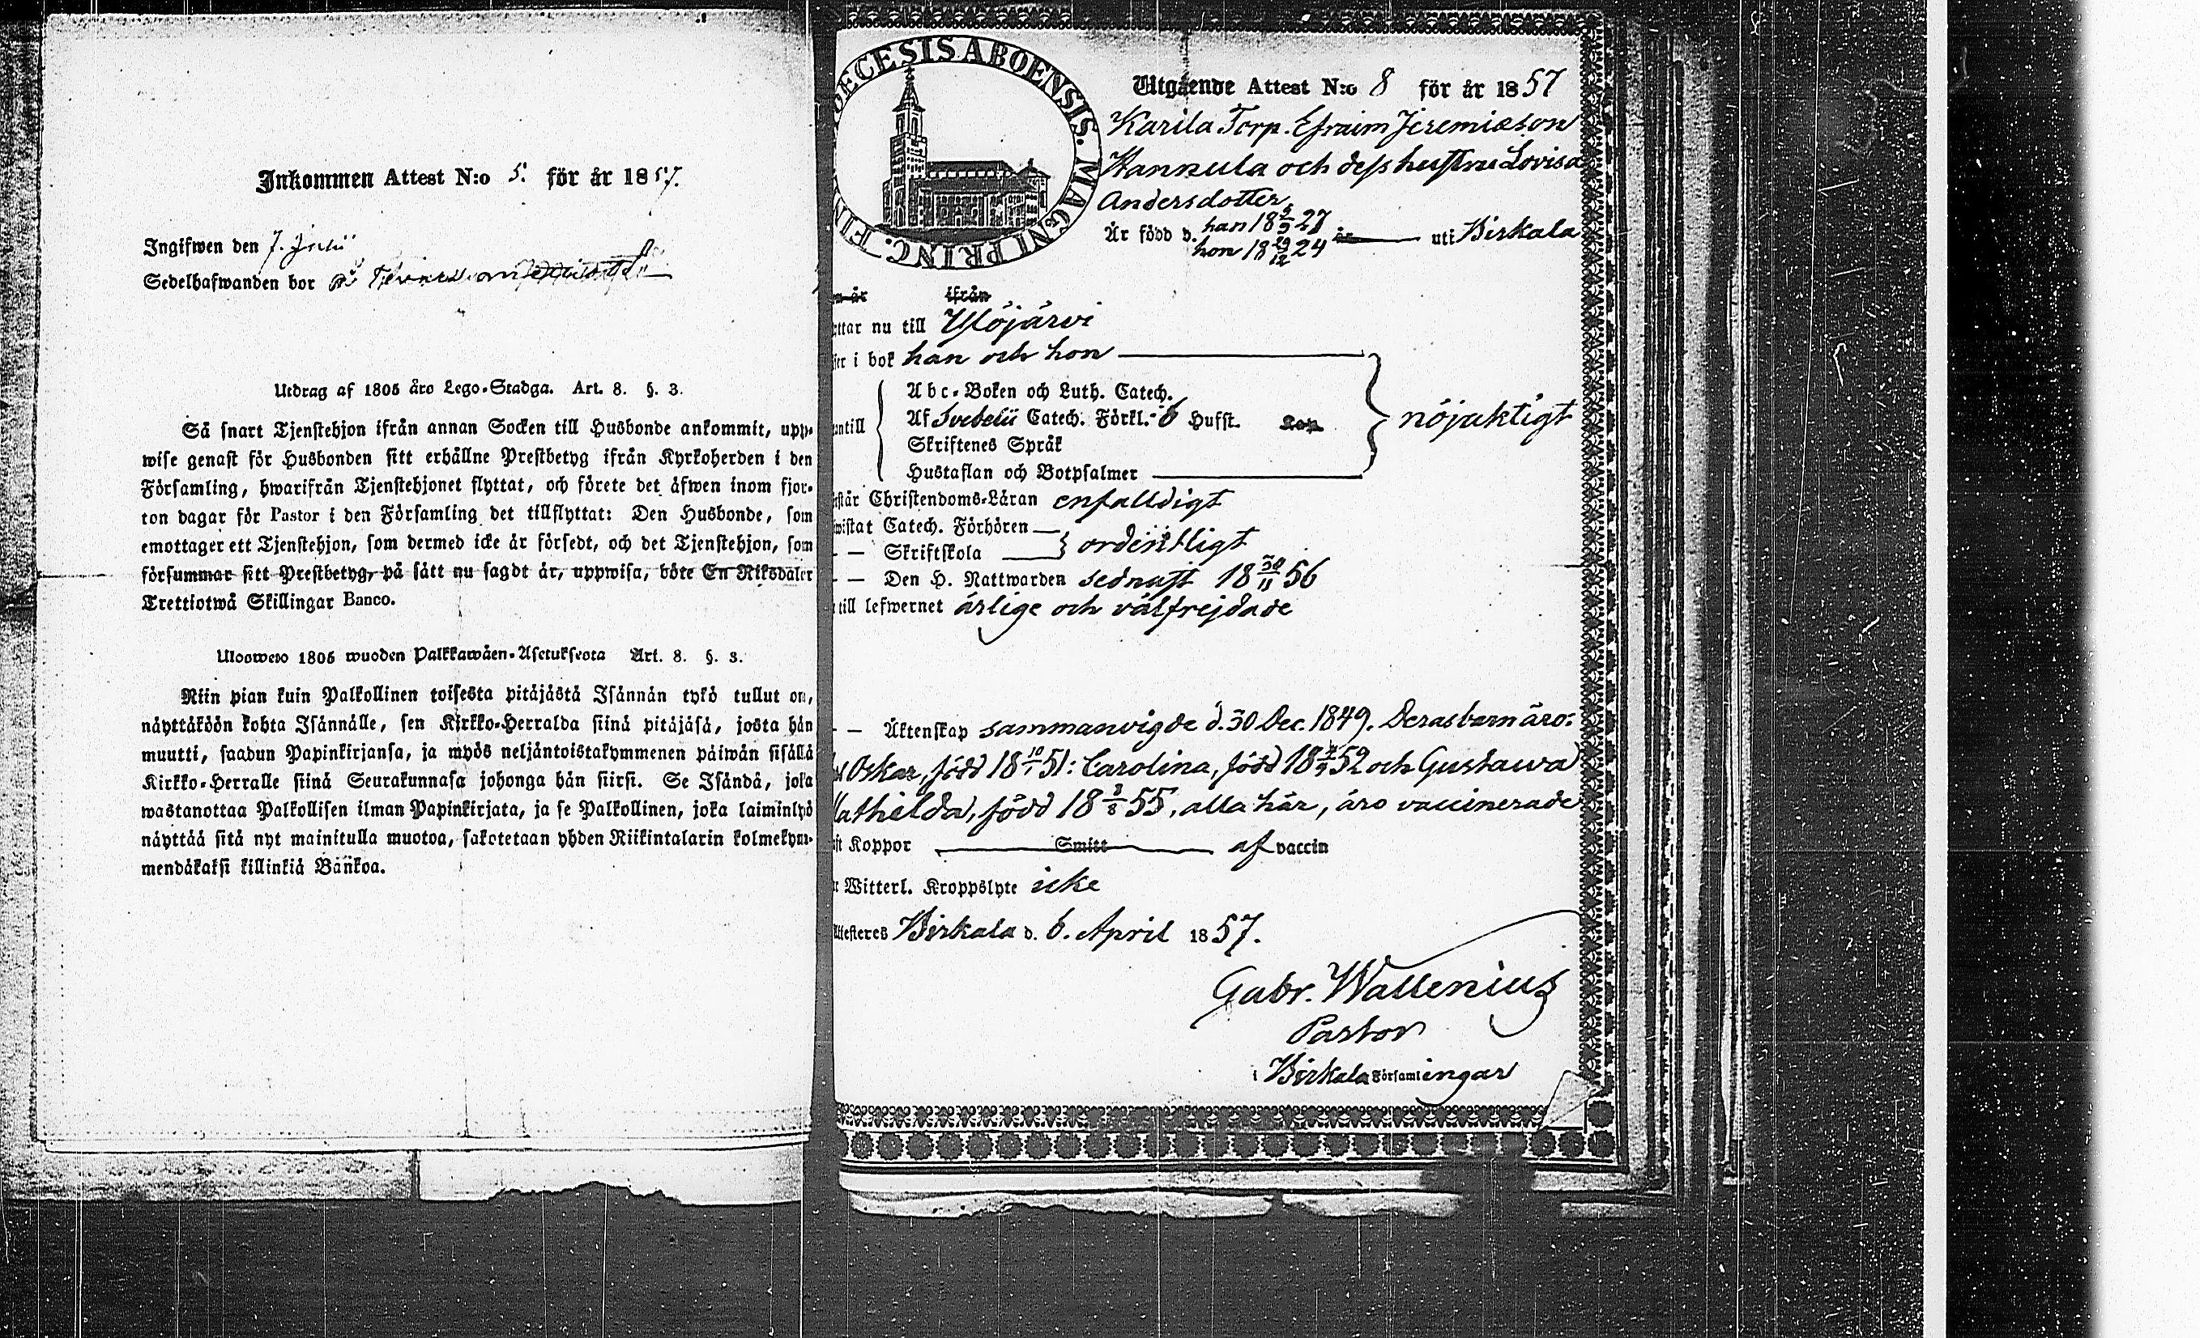 Inkommen Attest N:o 5. för år 1857.
Ingifwen den 7. Julii
Sedelhafwanden bor på
Utdrag af 1805 års Lego-Stadga. Art. 8. §. 3.
Så snart Tjenstehjon ifrån annan Socken till Husbonde ankommit, upp-
wise genast för Husbonden sitt erhållne Prestbetyg ifrån Kyrkoherden i den
Församling, hwarifrån Tjenstehjonet flyttat, och förete det äfwen inom fjor-
ton dagar för Pastor i den Församling det tillflyttat: Den Husbonde, som
emottager ett Tjenstehjon, som dermed icke är försedt, och det Tjenstehjon, som
försummar sitt Prestbetyg, på sätt nu sagdt är, uppwisa, böte En Riksdaler
Trettiotwå Skillingar Banco.
Uloswedo 1805 wuoden Palkkawäen-Asetuksesta Art. 8. §. 3.
Niin pian kuin Palkollinen toisesta pitäjästä Isännän tykö tullut on,
näyttäköön kohta Isännälle, sen Kirkko-Herralda siinä pitäjäsä, josta hän
muutti, saadun Papinkirjansa, ja myös neljäntoistakymmenen päiwän sisällä
Kirkko-Herralle siinä Seurakunnasa johonga hän siirsi. Se Isändä, joka
wastanottaa Palkollisen ilman Papinkirjata, ja se Palkollinen, joka laiminlyö
näyttää sitä nyt mainitulla muotoa, sakotetaan yhden Riikintalarin kolmekym-
mendäkaksi killinkiä Bankoa.
DECESIS ABOENSIS. MAGNI PRINC. FIN
Utgående Attest N:o 8 för år 1857
Karila Torp. Efraim Jeremiæson
Hannula och dess hustru Lovisa
Andersdotter,
Är född d. han 18 27
hon 18 29/12 24 år uti Birkala
n år ifrån
ttar nu till Ylöjärvi
ser i bok han och hon
Abc-Boken och Luth. Catech.
ntill Af Svebelii Catech. Förkl. 6 Hufst. Lop nöjaktigt
Skriftenes Språk
Hustaflan och Botpsalmer
står Christendoms-Läran enfalldigt
wistat Catech. Förhören
— — Skriftskola ordentligt
— — Den H. Nattwarden sednast 18 30/11 56
till lefwernet ärlige och välfrejdade
— — Äktenskap sammanvigde d. 30 Dec. 1849. Deras barn äro:
Oskar, född 18 10/1 51: Carolina, född 18 52 och Gustawa
Mathilda, född 18 55, alla här, äro vaccinerade
ft Koppor Smitt af vaccin
r Witterl. Kroppslyte icke
Attesteres Birkala d. 6. April 1857.
Gabr. Wallenius
Pastor
i Birkala Församlingar